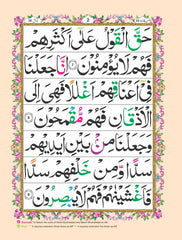 2
حَقَّ الْقَوْلُ عَلٰۤى اَكْثَرِهِمْ
فَهُمْ لَا يُؤْمِنُوْنَ ۞ اِنَّا جَعَلْنَا
فِيْۤ اَعْنَاقِهِمْ اَغْلٰلًا فَهِيَ اِلَى
الْاَذْقَانِ فَهُمْ مُّقْمَحُوْنَ ۞
وَجَعَلْنَا مِنْۢ بَيْنِ اَيْدِيْهِمْ
سَدًّا وَّمِنْ خَلْفِهِمْ سَدًّا
فَاَغْشَيْنٰهُمْ فَهُمْ لَا يُبْصِرُوْنَ ۞